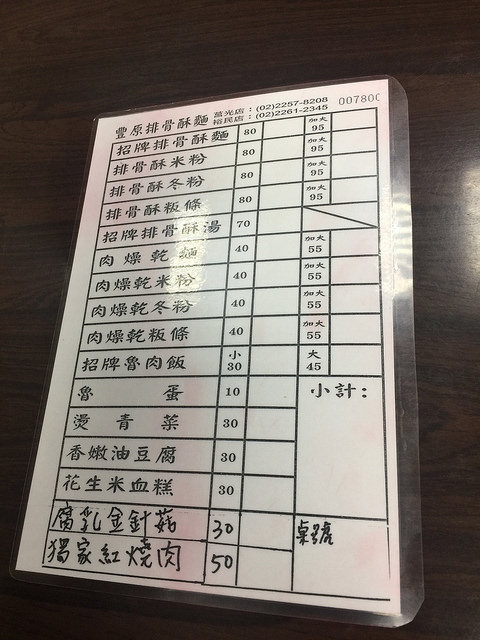 豐原排骨酥麵 萬光店:(02)2257-8208 00780
裕民店:(02)2261-2345
招牌排骨酥麵 80 加大 95
排骨酥米粉 80 加大 95
排骨酥冬粉 80 加大 95
排骨酥粄條 80 加大 95
招牌排骨酥湯 70
肉燥乾麵 40 加大 55
肉燥乾米粉 40 加大 55
肉燥乾冬粉 40 加大 55
肉燥乾粄條 40 加大 55
招牌魯肉飯 小 30 大 45
魯蛋 10 小計:
燙青菜 30
香嫩油豆腐 30
花生米血糕 30
腐乳金針菇 30 桌號
獨家紅燒肉 50